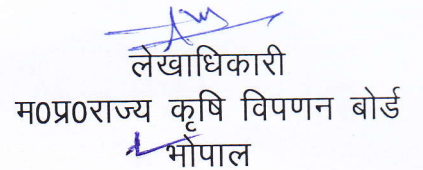 लेखाधिकारी
म0प्र0राज्य कृषि विपणन बोर्ड
भोपाल